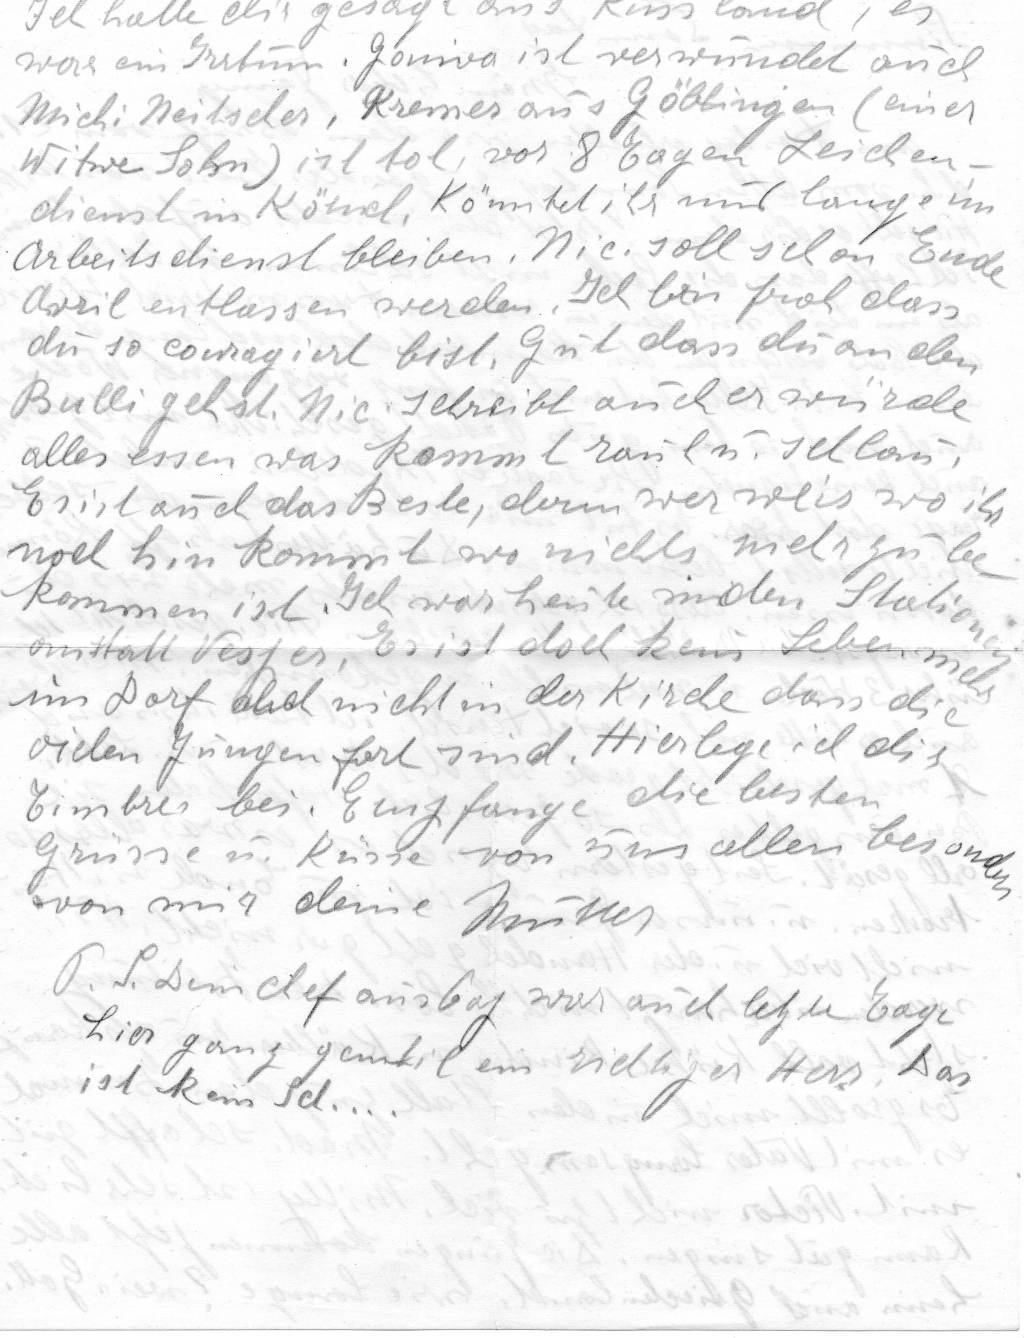 Ich hatte dir gesagt aus Russland, es
war ein Irrtum. ist verwundet auch
Michi Neitscher, Kremer aus Göblingen (einer
Witwe Sohn) ist tot, vor 8 Tagen Leichen-
dienst in Körich. Könntet ihr nur lange im
Arbeitsdienst bleiben. Nic. soll schon Ende
April entlassen werden. Ich bin froh dass
du so couragiert bist. Gut dass du an den
Bulli gehst. Nic. schreibt auch er würde
alles essen was kommt u. schlau.
Es ist auch das Beste, denn wer weis wo ihr
noch hin kommt wo nichts mehr zu be
kommen ist. Ich war heute in den Stationen
anstatt Vesper. Es ist doch kein Leben mehr
im Dorf und nicht in der Kirche dass die
vielen Jungen fort sind. Hier lege ich dir
Timbres bei. Empfange die besten
Grüsse u. Küsse von uns allen besonders
von mir deine Mutter
P.S. Dein chef war auch letzte Tage
hier ganz gentil ein richtiger Herr. Das
ist kein Sch....